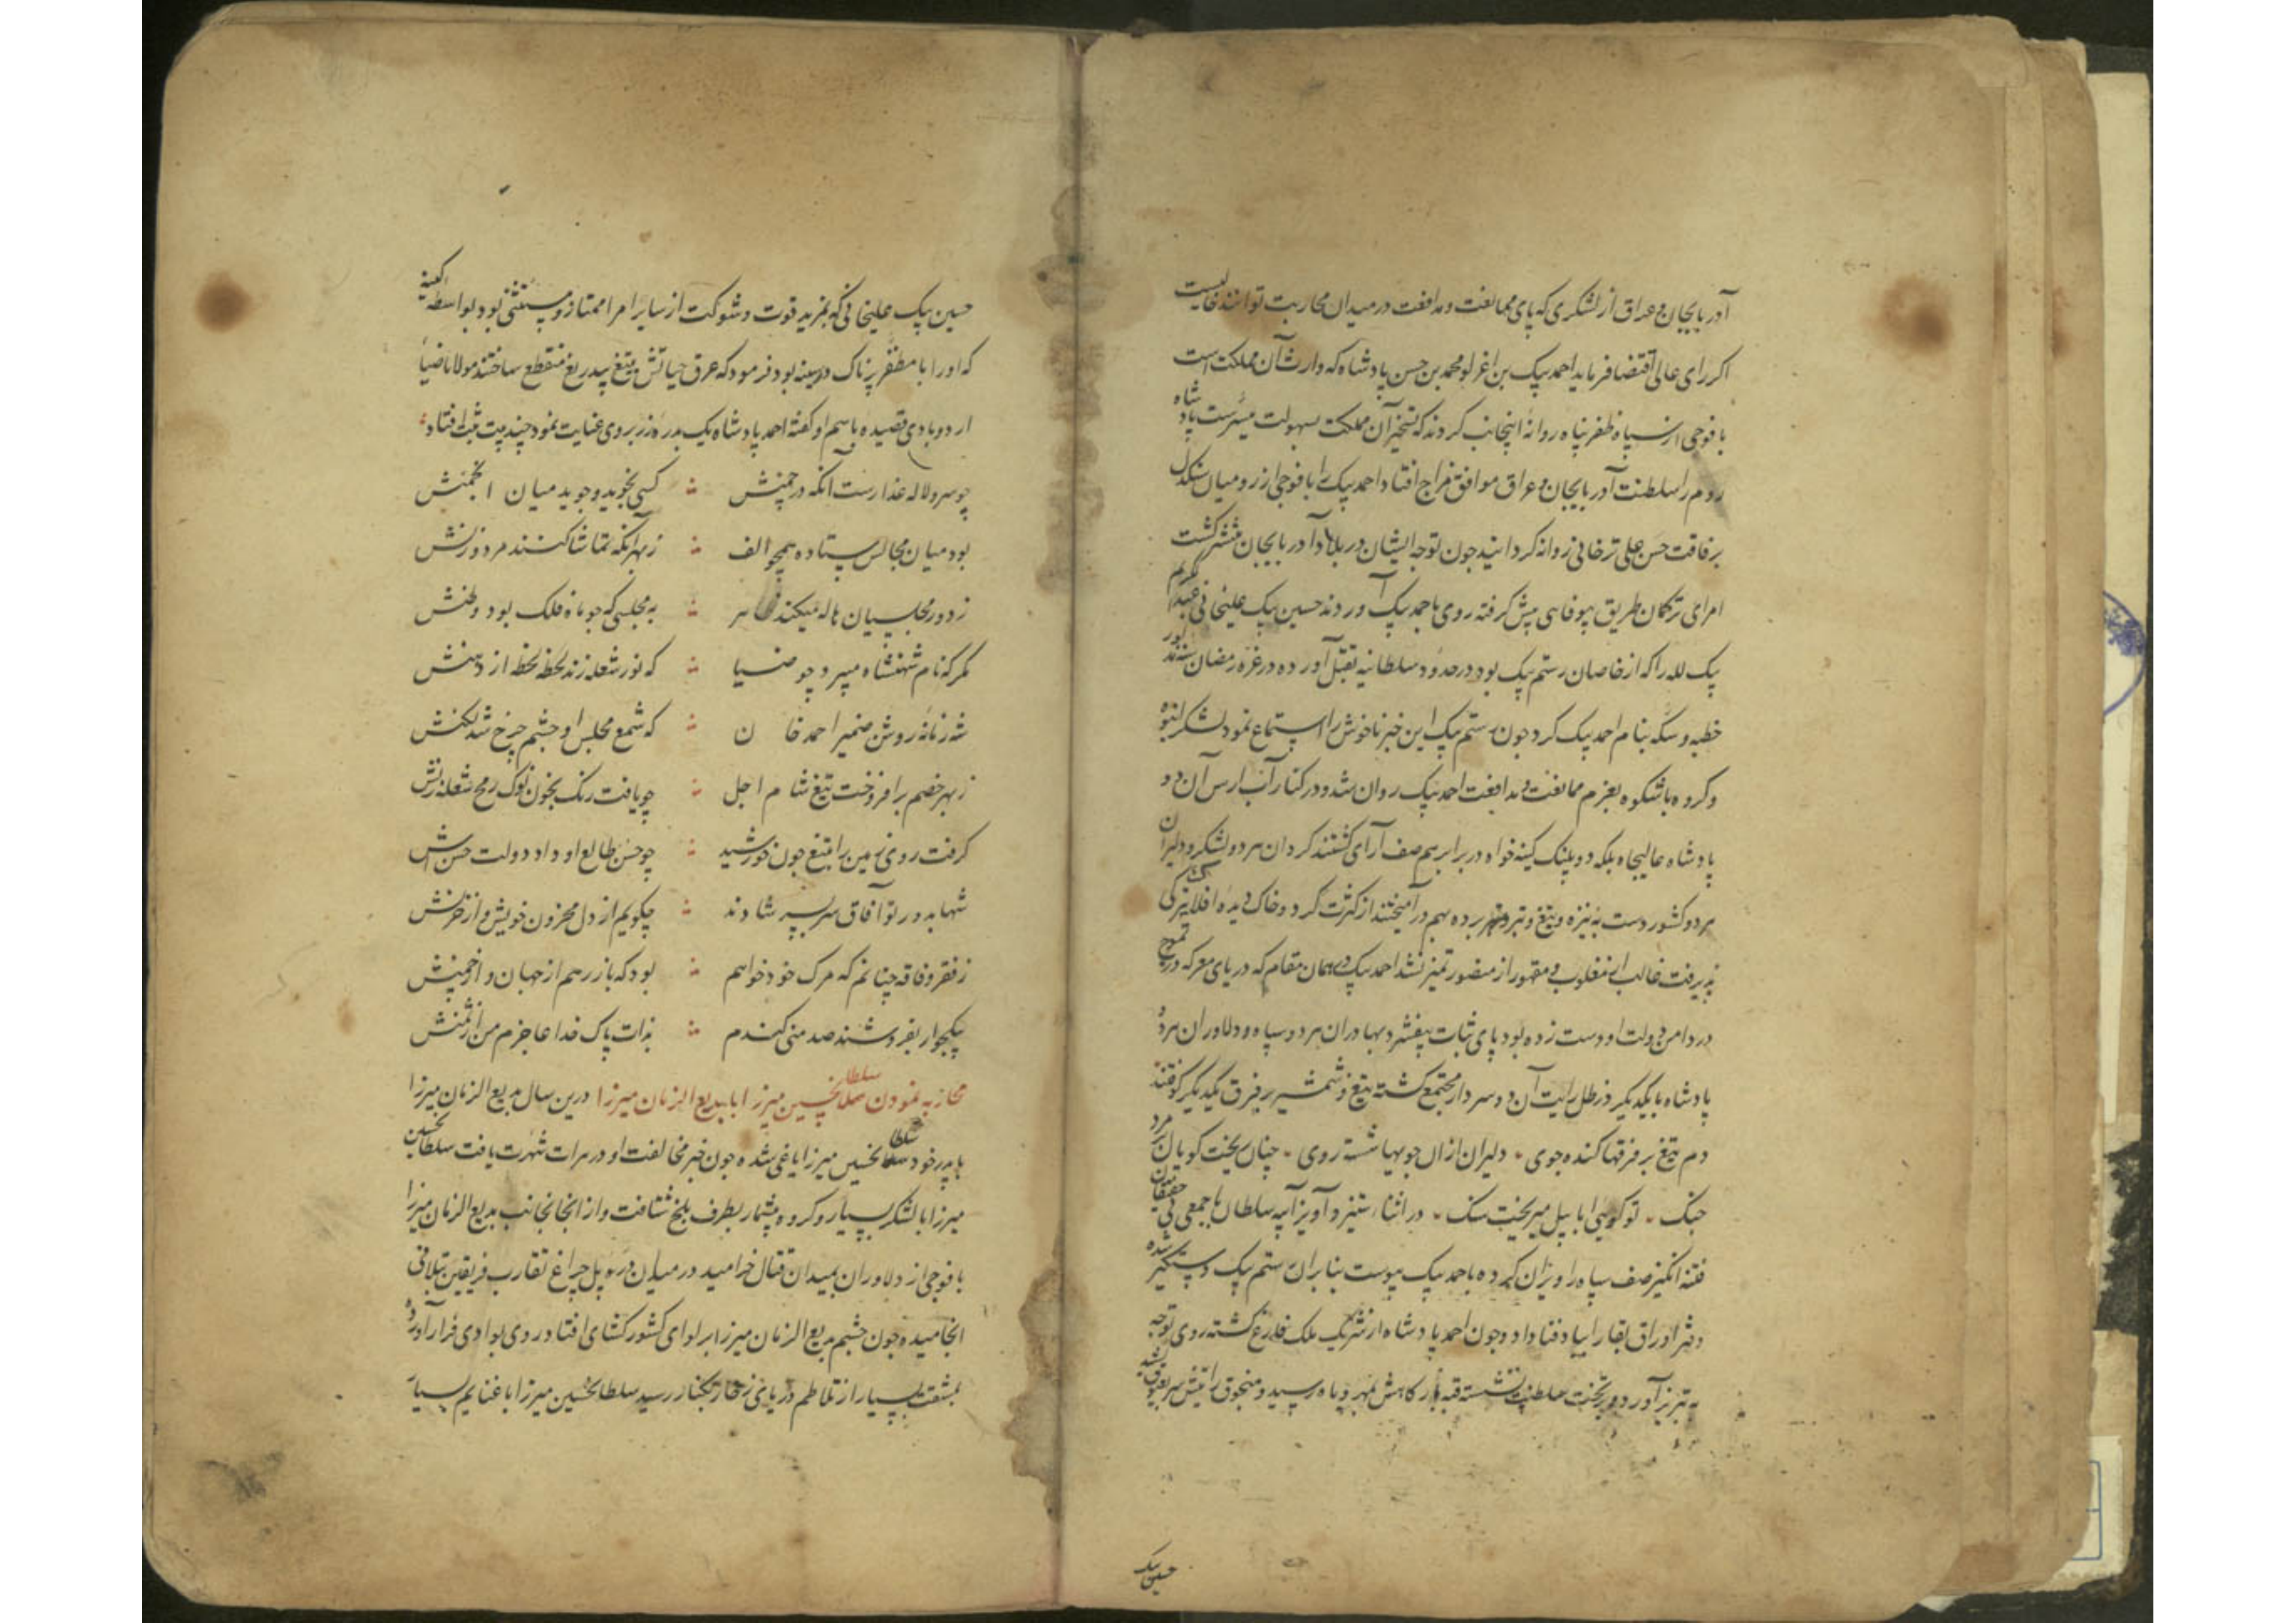 آذربایجان و عراق از لشکری که پای ممانعت و مدافعت در میدان محاربت توانند خالیست
اکر رای عالی اقتضا فرماید احمد بیک بن اغرلو محمد بن حسن پادشاه که وارث آن مملکت است
با فوجی از سپاه ظفر پناه روانهٔ اینجانب کردند که تسخیر آن مملکت بسهولت میسرست پادشاه
روم را سلطنت آذربایجان و عراق موافق مزاج افتاد احمد بیک را با فوجی از رومیان سنکدل
برفاقت حسن علی ترخانی روانه کردانید چون توجه ایشان در بلاد آذربایجان منتشر کشت
امرای ترکمان طریق بیوفایی پیش کرفته روی باحمد بیک آوردند حسین بیک علیخانی عبدالکریم
بیک لله را که از خاصان رستم بیک بود در حدود سلطانیه بقتل آورده در غره رمضان سنه مذکور
خطبه و سکه بنام احمد بیک کرد چون رستم بیک این خبر ناخوش را استماع نمود لشکر انبوه
و کروه باشکوه بعزم ممانعت و مدافعت احمد بیک روان شد و در کنار آب ارس آن دو
پادشاه عالیجاه بلکه دو پلنک کینه خواه در برابر هم صف آرای کشتند کردان هر دو لشکر و دلیران
هر دو کشور دست به نیزه و تیغ و تیر برده بهم در آمیختند از کثرت کرد و خاک دیدهٔ افلاک تیرکی
پذیرفت غالب از مغلوب و مقهور از منصور تمیز نشد احمد بیک در همان مقام که دریای معرکه در تموج
در دامن دولت او دست زده بود پای ثبات بیفشرد بهادران هر دو سپاه و دلاوران هر دو
پادشاه با یکدیکر در ظل رایت آن دو سردار مجتمع کشته تیغ و شمشیر بر فرق یکدیکر کوفتند
دم تیغ بر فرقها کنده جوی ٠ دلیران ازان جویها شسته روی ٠ چنان ریخت کوپال مردان
جنک ٠ تو کویی ابابیل میریخت سنک ٠ در اثناء ستیز و آویز آیبه سلطان با جمعی بی حقیقتان
فتنه انکیز صف سپاه را ویران کرده باحمد بیک پیوست بنابران رستم بیک دستکیر شده
دفتر اوراق بقا را بباد فنا داد و چون احمد پادشاه از شریک ملک فارغ کشته روی توجه
به تبریز آورد و بر تخت سلطنت نشسته قبه بارکاهش بمهر و ماه رسید و منجوق رایتش سر بعیوق کشید
حسین بیک
حسین بیک علیخانی که بمزید قوت و شوکت از سایر امرا ممتاز و مستثنی بود بواسطه کینهٔ
که او را با مظفر پرناک در سینه بود فرمود که عرق حیاتش بتیغ بیدریغ منقطع ساختند مولانا ضیاء
اردوبادی قصیده باسم او کفته احمد پادشاه یک بدره زر بروی عنایت نمود چند بیت ثبت افتاد
چو سرو لاله عذارست آنکه در چمنش ∴ کسی نجوید و جوید میان انجمنش
بود میان مجالس ستاده همچو الف ∴ ز بهر آنکه تماشا کنند مرد و زنش
ز دور مجلسیان هاله میکند ظاهر ∴ به مجلسی که چو ماه فلک بود وطنش
مکر که نام شهنشاه میبرد چو ضیا ∴ که نور شعله زند لحظه لحظه از دهنش
شه زمانه روشن ضمیر احمد خان ∴ که شمع مجلس او چشم چرخ شد لکنش
ز بهر خصم برافروخت تیغ شام اجل ∴ چو یافت رنک بخون نوک رمح شعله زنش
کرفت روی زمین را بتیغ چون خورشید ∴ چو حسن طالع او داد دولت حسنش
شها به دور تو آفاق سر بسر شادند ∴ چکویم از دل محزون خویش و از حزنش
ز فقر و فاقه چنانم که مرک خود خواهم ∴ بود که باز رهم از جهان و از محنش
بیکجوار بفروشند صد منی کندم ∴ بذات پاک خدا عاجزم من از ثمنش
محاربه نمودن سلطان حسین میرزا با بدیع الزمان میرزا درین سال بدیع الزمان میرزا
با پدر خود سلطان حسین میرزا یاغی شده چون خبر مخالفت او در هرات شهرت یافت سلطان حسین
میرزا با لشکر بسیار و کروه بیشمار بطرف بلخ شتافت و از آنجانب بدیع الزمان میرزا
با فوجی از دلاوران بمیدان قتال خرامید در میان دره پل چراغ تقارب فریقین بتلاقی
انجامیده چون چشم بدیع الزمان میرزا بر لوای کشور کشای افتاد روی بوادی فرار آورده
بمشقت بسیار از تلاطم دریای زخار بکنار رسید سلطان حسین میرزا با غنایم بسیار